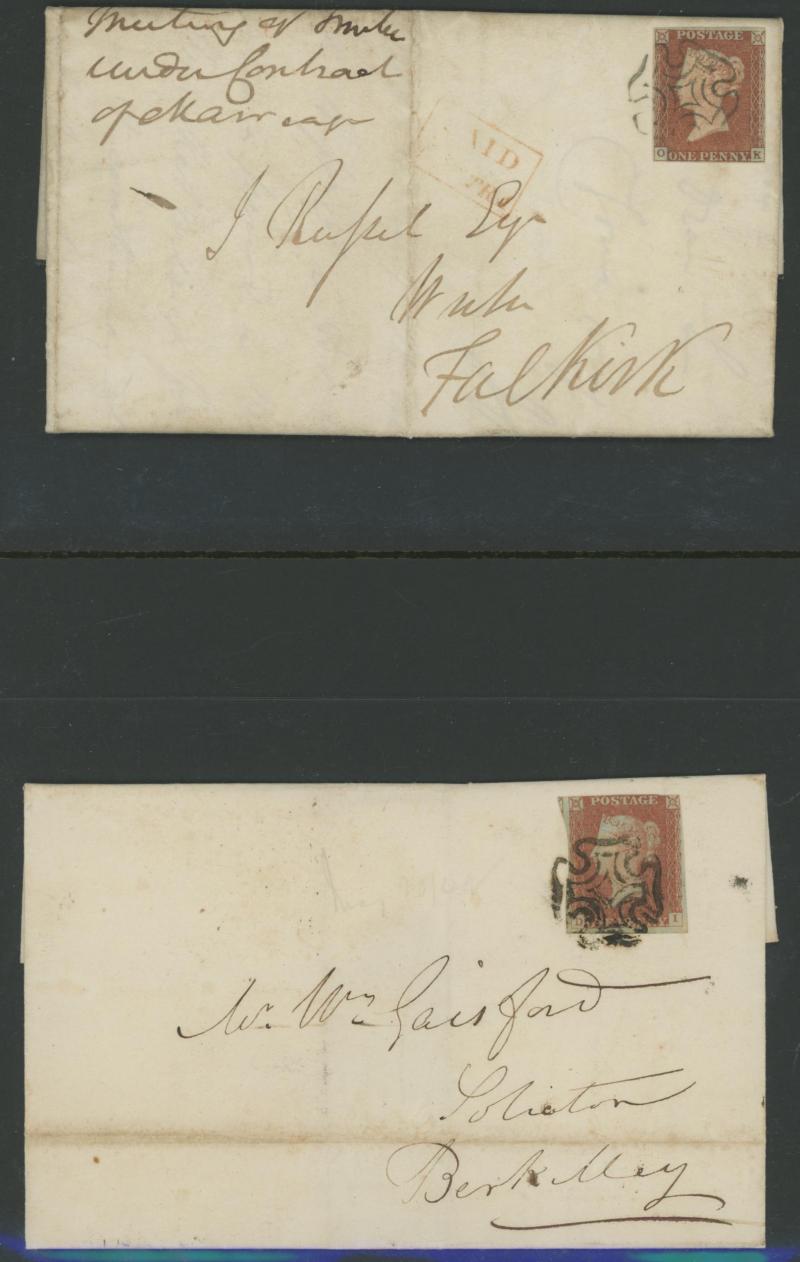 Meeting of
under Contract
of
POSTAGE
O ONE PENNY K
AID
J Russel Esqr
Writer
Falkirk
POSTAGE
D I
Mr. Wm Gaisford
Solicitor
Berkeley